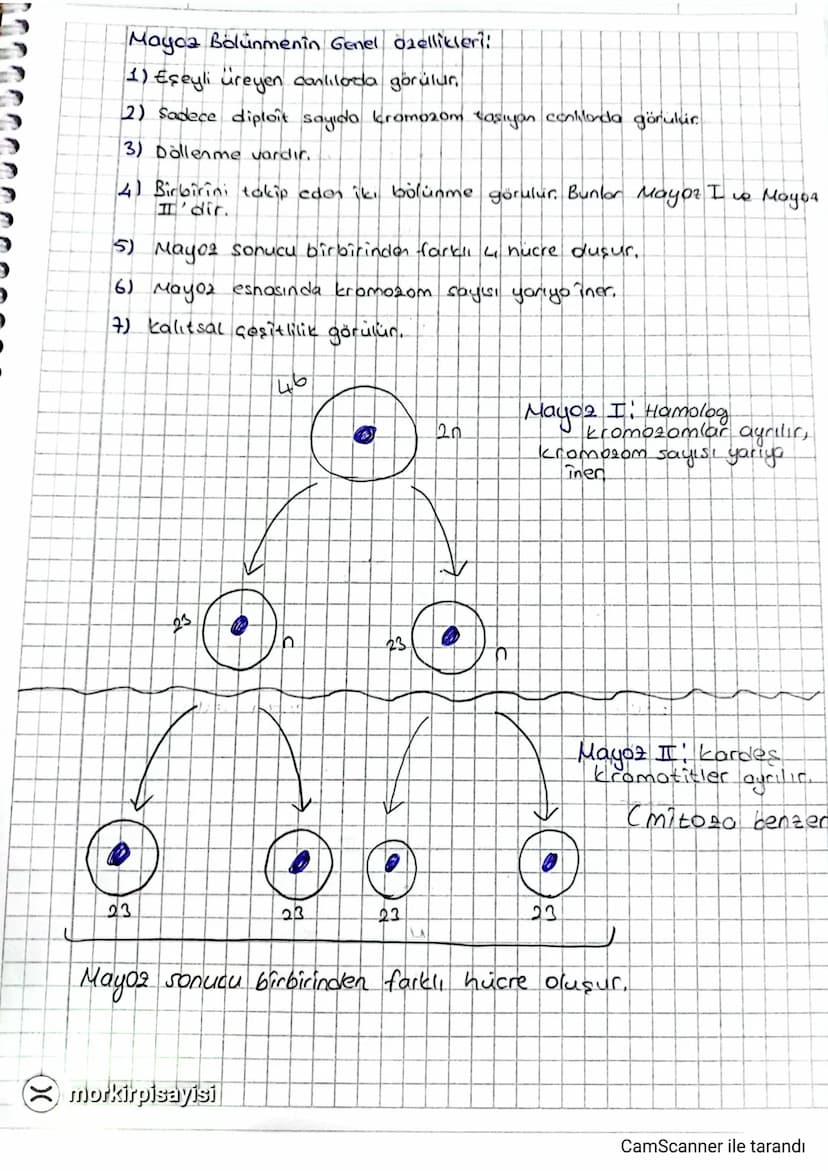 Mayoz Bölünmenin Genel özellikleri:
1) Eşeyli üreyen canlılarda görülür.
2) Sadece diploit sayıda kromozom taşıyan canlılarda görülür.
3) Döllenme vardır.
4) Birbirini takip eden iki bölünme görülür. Bunlar Mayoz I ve Mayoz
II'dir.
5) Mayoz sonucu birbirinden farklı 4 hücre oluşur.
6) Mayoz esnasında kromozom sayısı yarıya iner.
7) Kalıtsal çeşitlilik görülür.
46
2n
Mayoz I: Hamolog
kromozomlar ayrılır,
kromozom sayısı yarıya
iner
23
n
23
n
Mayoz II: Kardeş
kromotitler ayrılır.
(mitoza benzer
23
23
23
23
4
Mayoz sonucu birbirinden farklı hücre oluşur.
morkirpisayisi
CamScanner ile tarandı